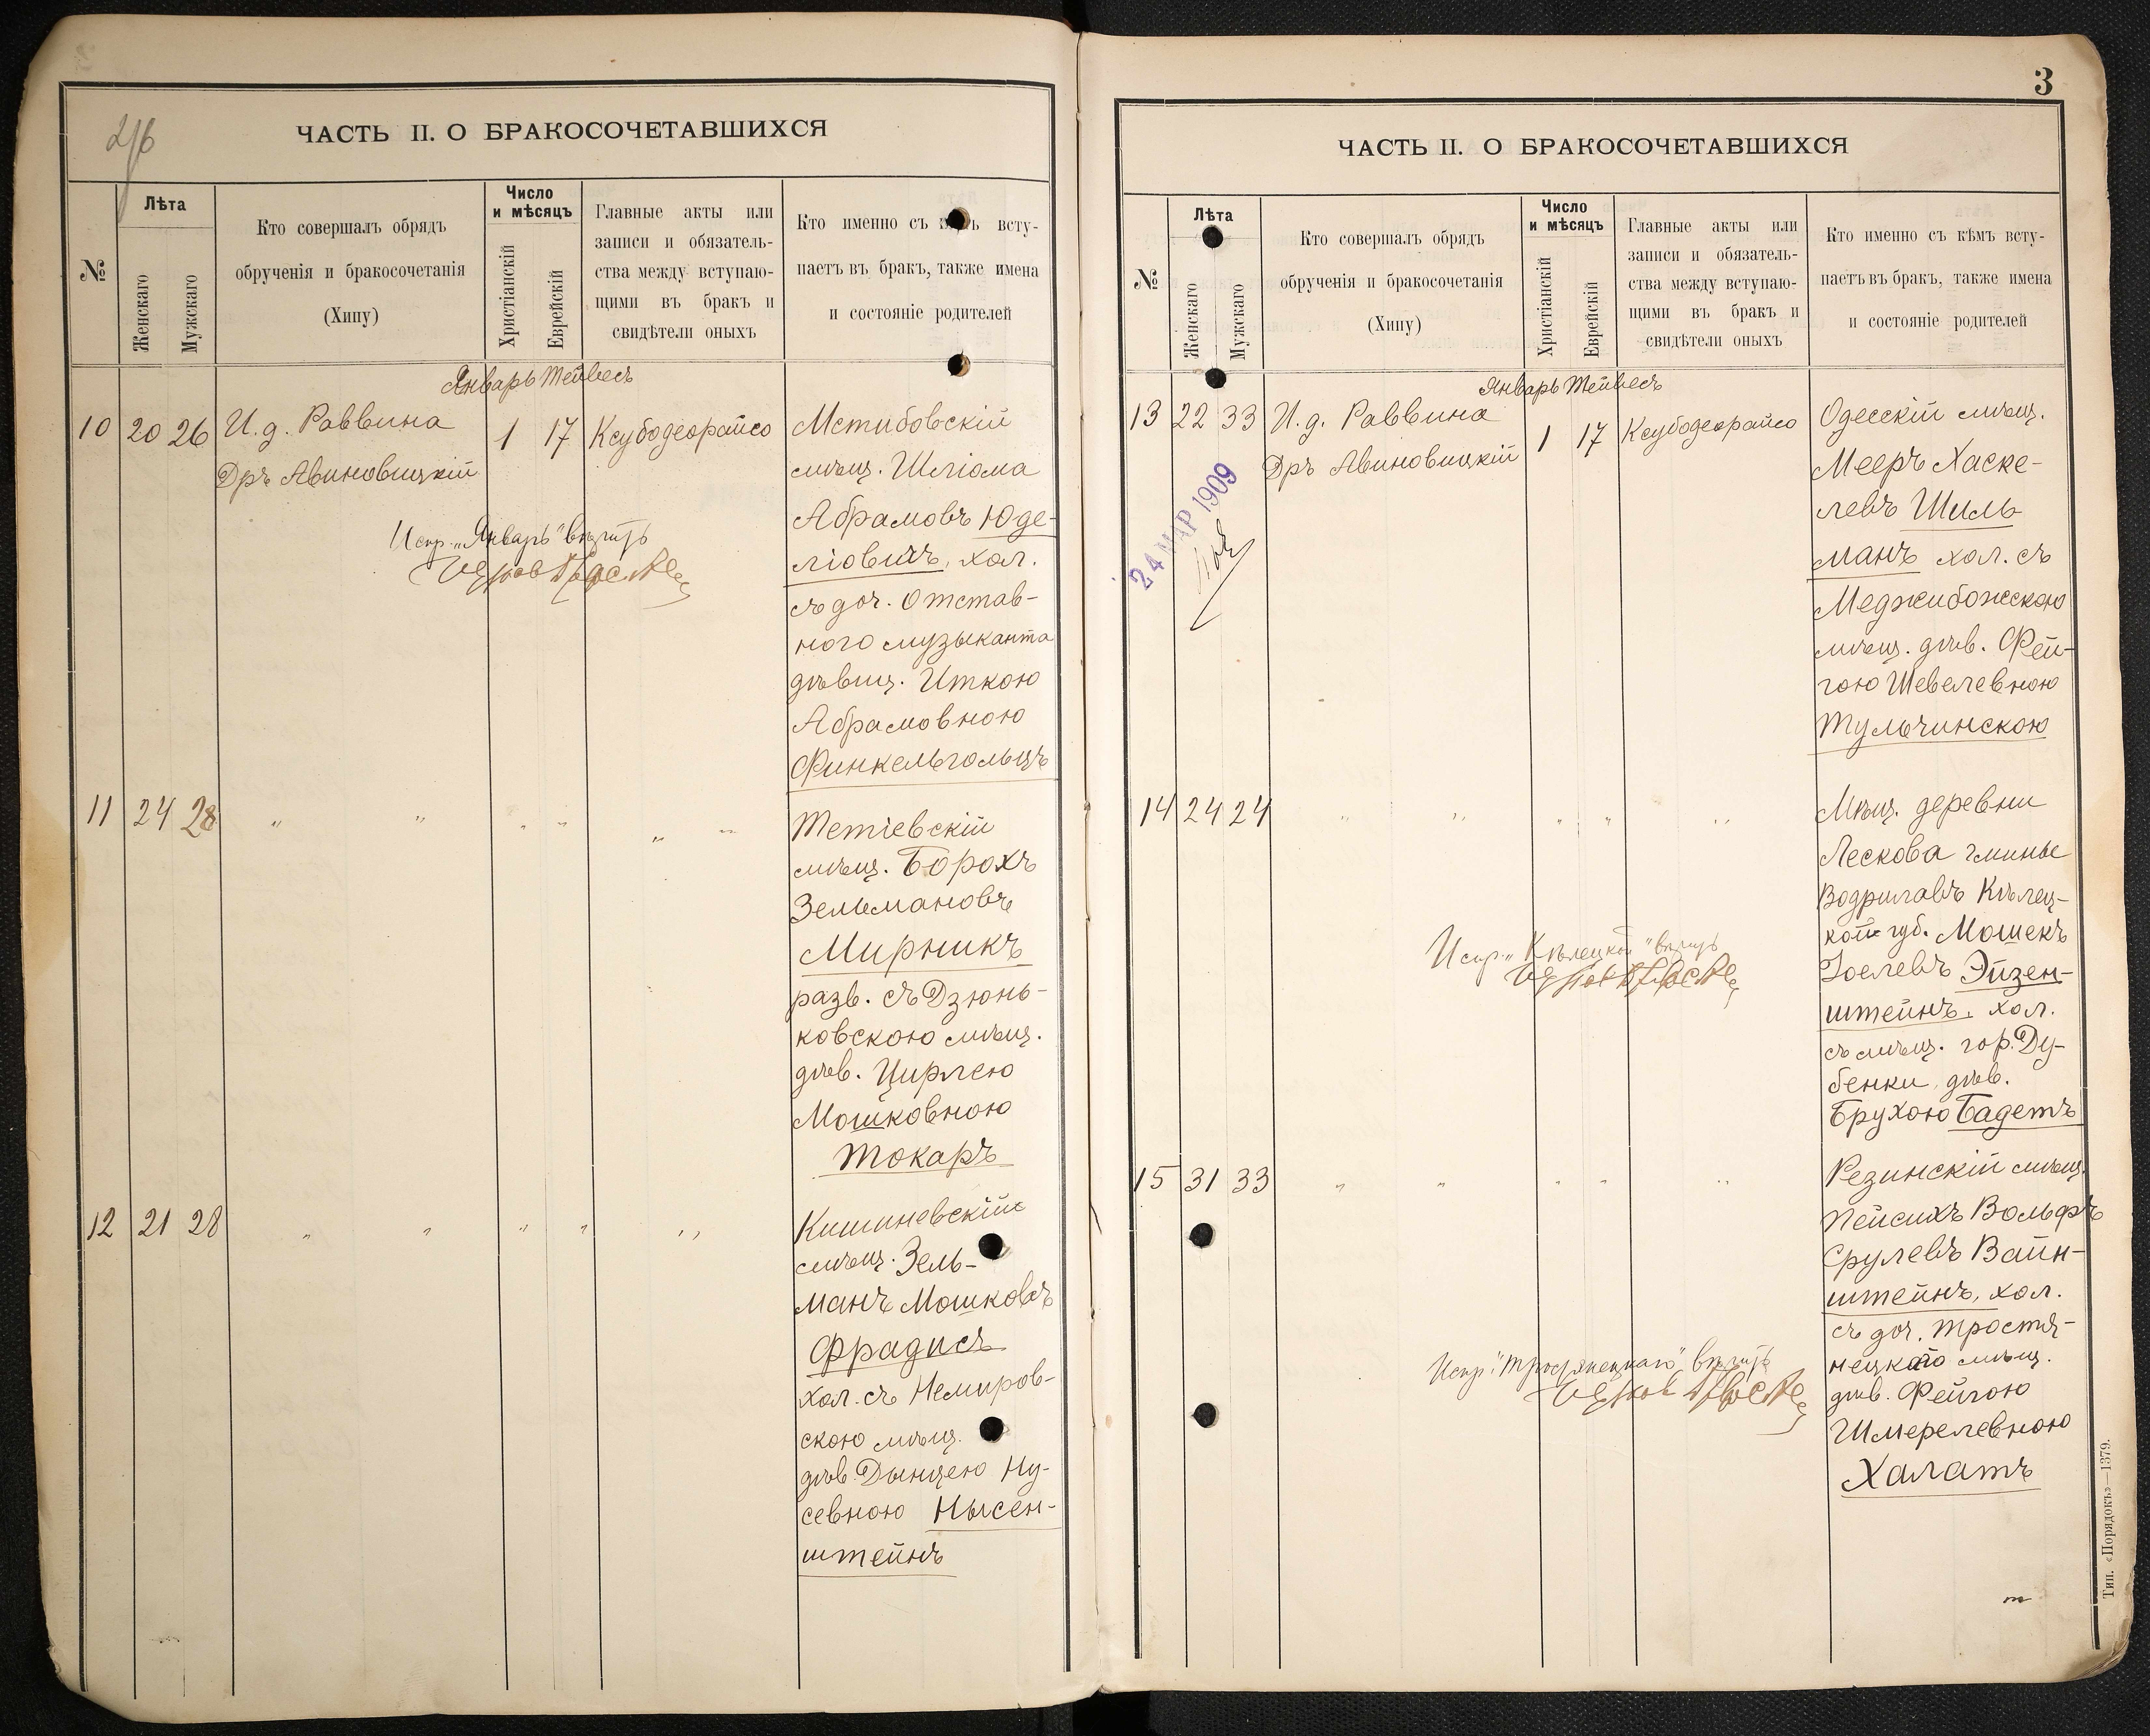 ЧАСТЬ II. О БРАКОСОЧЕТАВШИХСЯ
№
Лѣта
Женскаго
Мужскаго
Кто совершалъ обрядъ
обрученія и бракосочетанія
(Хипу)
Число
и мѣсяцъ
Христіанскій
Еврейскій
Главные акты или
записи и обязатель-
ства между вступаю-
щими въ бракъ и
свидѣтели оныхъ
Кто именно съ всту-
паетъ въ бракъ, также имена
и состояніе родителей
Январь Тейвесъ
10 20 26 И. д. Раввина 1 17 Ксубодеорайсо
Дръ Авиновицкій
Испр. „Январь" вѣрить
Мстибовскій
мѣщ. Шліома
Абрамовъ Юде-
ліовичъ, хол.
съ доч. Отстав-
ного музыканта
дѣвиц. Иткою
Абрамовною
Финкельгольцъ
11 24 28 „ „ „ „ „ „
Тетіевскій
мѣщ. Борохъ
Зельмановъ
Мирникъ
разв. съ Дзюнь-
ковскою мѣщ.
дѣв. Цирлею
Мошковною
Токаръ
12 21 28 „ „ „ „ „
Кишиневскій
мѣщ. Зель-
манъ Мошковъ
Фрадисъ
хол. съ Немиров-
скою мѣщ.
дѣв. Дынцею Ну-
севною Нысен-
штейнъ
3
ЧАСТЬ II. О БРАКОСОЧЕТАВШИХСЯ
№
Лѣта
Женскаго
Мужскаго
Кто совершалъ обрядъ
обрученія и бракосочетанія
(Хипу)
Число
и мѣсяцъ
Христіанскій
Еврейскій
Главные акты или
записи и обязатель-
ства между вступаю-
щими въ бракъ и
свидѣтели оныхъ
Кто именно съ кѣмъ всту-
паетъ въ бракъ, также имена
и состояніе родителей
Январь Тейвесъ
13 22 33 И. д. Раввина 1 17 Ксубодеорайсо
Дръ Авиновицкій
24 МАР 1909
Одесскій мѣщ.
Мееръ Хаске-
левъ Шиль-
манъ хол. съ
Меджибожскою
мѣщ. дѣв. Фей-
гою Шевелевною
Тульчинскою
14 24 24 „ „ „ „ „
Мѣщ. деревни
Лескова гмины
Водрилавъ Кѣлец-
кой губ. Мошекъ
Іоелевъ Эйзен-
штейнъ, хол.
съ мѣщ. гор. Ду-
бенки, дѣв.
Брухою Бадетъ
Испр. „Кѣлецкой" вѣрить
15 31 33 „ „ „ „ „
Резинскій мѣщ.
Пейсихъ Вольфъ
Срулевъ Вайн-
штейнъ, хол.
съ доч. Тростя-
нецкаго мѣщ.
дѣв. Фейгою
Шмерелевною
Халатъ
Испр. „Тростянецкаго" вѣрить
Тип. «Порядокъ»—1379.